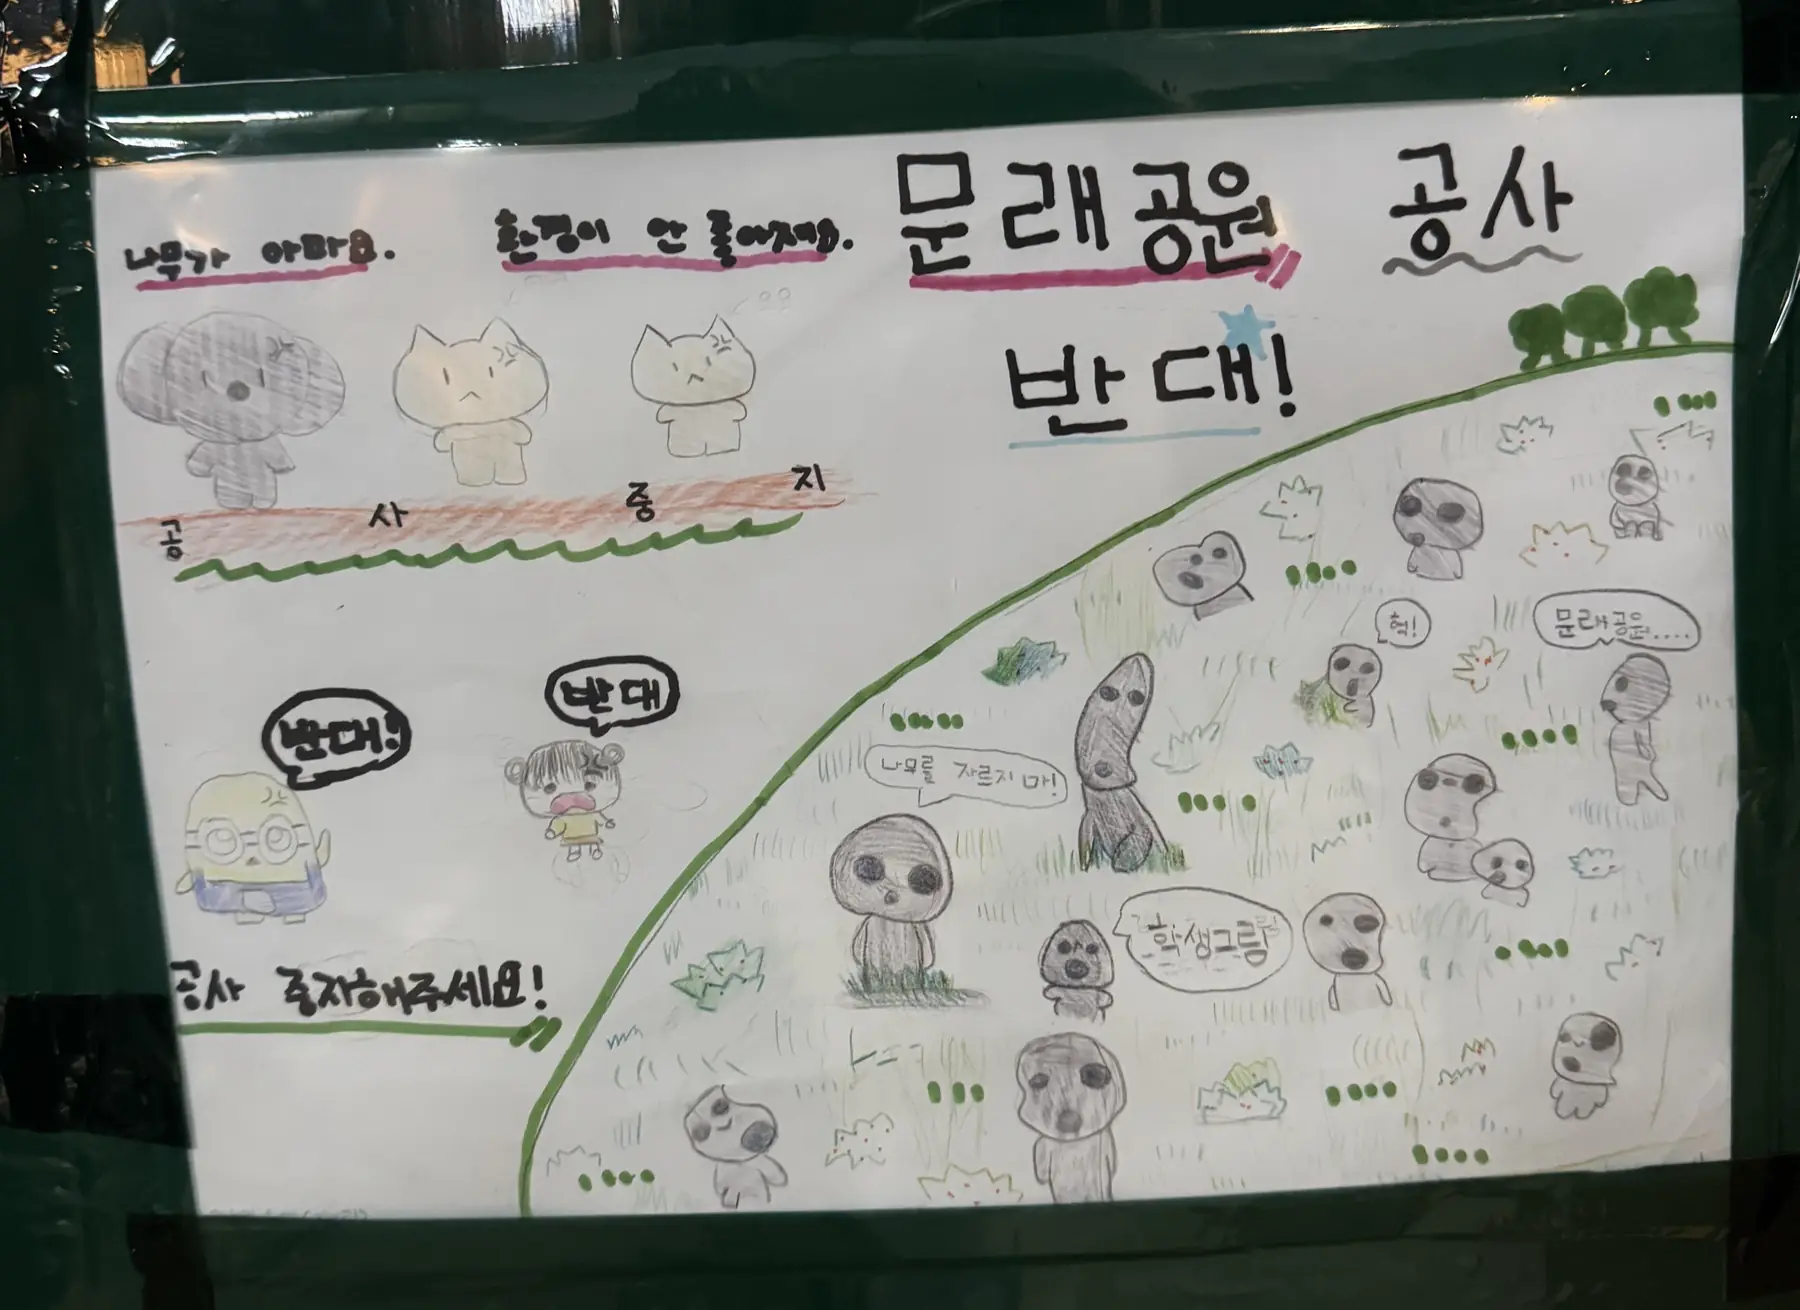 나무가 아파요.
환경이 안 좋아져요.
문래공원 공사
반대!
공 사 중 지
반대!
반대
공사 중지해주세요!
헉!
문래공원....
나무를 자르지 마!
학생그림